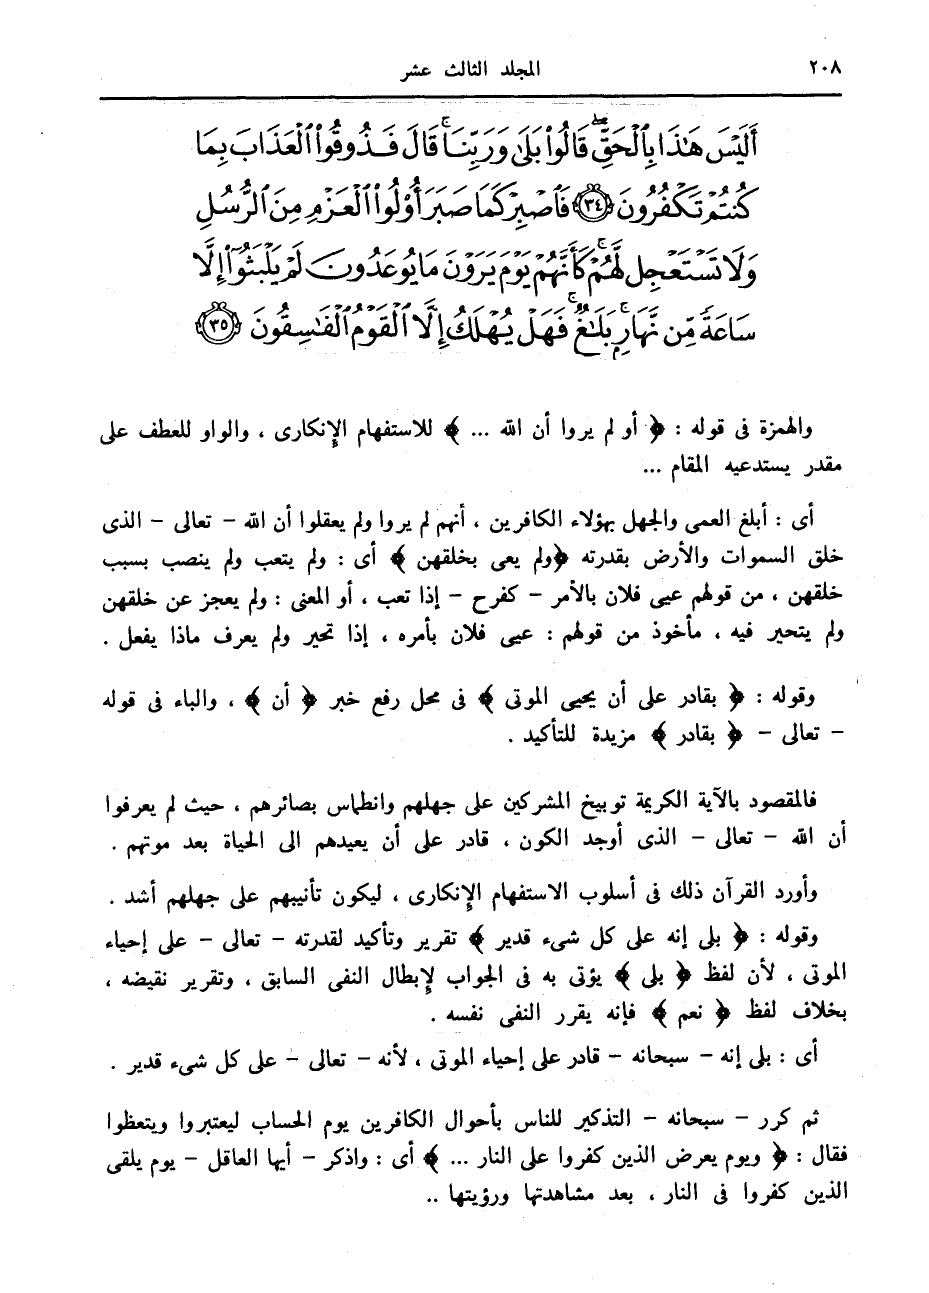 ٢٠٨ المجلد الثالث عشر
أَلَيْسَ هَٰذَا بِٱلْحَقِّ ۖ قَالُوا۟ بَلَىٰ وَرَبِّنَا ۚ قَالَ فَذُوقُوا۟ ٱلْعَذَابَ بِمَا
كُنتُمْ تَكْفُرُونَ ﴿٣٤﴾ فَٱصْبِرْ كَمَا صَبَرَ أُو۟لُوا۟ ٱلْعَزْمِ مِنَ ٱلرُّسُلِ
وَلَا تَسْتَعْجِل لَّهُمْ ۚ كَأَنَّهُمْ يَوْمَ يَرَوْنَ مَا يُوعَدُونَ لَمْ يَلْبَثُوٓا۟ إِلَّا
سَاعَةً مِّن نَّهَارٍ ۚ بَلَٰغٌ ۚ فَهَلْ يُهْلَكُ إِلَّا ٱلْقَوْمُ ٱلْفَٰسِقُونَ ﴿٣٥﴾
والهمزة فى قوله : ﴿ أو لم يروا أن الله ... ﴾ للاستفهام الإنكارى ، والواو للعطف على
مقدر يستدعيه المقام ...
أى : أبلغ العمى والجهل بهؤلاء الكافرين ، أنهم لم يروا ولم يعقلوا أن الله – تعالى – الذى
خلق السموات والأرض بقدرته ﴿ولم يعى بخلقهن ﴾ أى : ولم يتعب ولم ينصب بسبب
خلقهن ، من قولهم عيى فلان بالأمر – كفرح – إذا تعب ، أو المعنى : ولم يعجز عن خلقهن
ولم يتحير فيه ، مأخوذ من قولهم : عيى فلان بأمره ، إذا تحير ولم يعرف ماذا يفعل .
وقوله : ﴿ بقادر على أن يحيى الموتى ﴾ فى محل رفع خبر ﴿ أن ﴾ ، والباء فى قوله
– تعالى – ﴿ بقادر ﴾ مزيدة للتأكيد .
فالمقصود بالآية الكريمة توبيخ المشركين على جهلهم وانطماس بصائرهم ، حيث لم يعرفوا
أن الله – تعالى – الذى أوجد الكون ، قادر على أن يعيدهم الى الحياة بعد موتهم .
وأورد القرآن ذلك فى أسلوب الاستفهام الإنكارى ، ليكون تأنيبهم على جهلهم أشد .
وقوله : ﴿ بلى إنه على كل شىء قدير ﴾ تقرير وتأكيد لقدرته – تعالى – على إحياء
الموتى ، لأن لفظ ﴿ بلى ﴾ يؤتى به فى الجواب لإبطال النفى السابق ، وتقرير نقيضه ،
بخلاف لفظ ﴿ نعم ﴾ فإنه يقرر النفى نفسه .
أى : بلى إنه – سبحانه – قادر على إحياء الموتى ، لأنه – تعالى – على كل شىء قدير .
ثم كرر – سبحانه – التذكير للناس بأحوال الكافرين يوم الحساب ليعتبروا ويتعظوا
فقال : ﴿ ويوم يعرض الذين كفروا على النار ... ﴾ أى : واذكر – أيها العاقل – يوم يلقى
الذين كفروا فى النار ، بعد مشاهدتها ورؤيتها ..